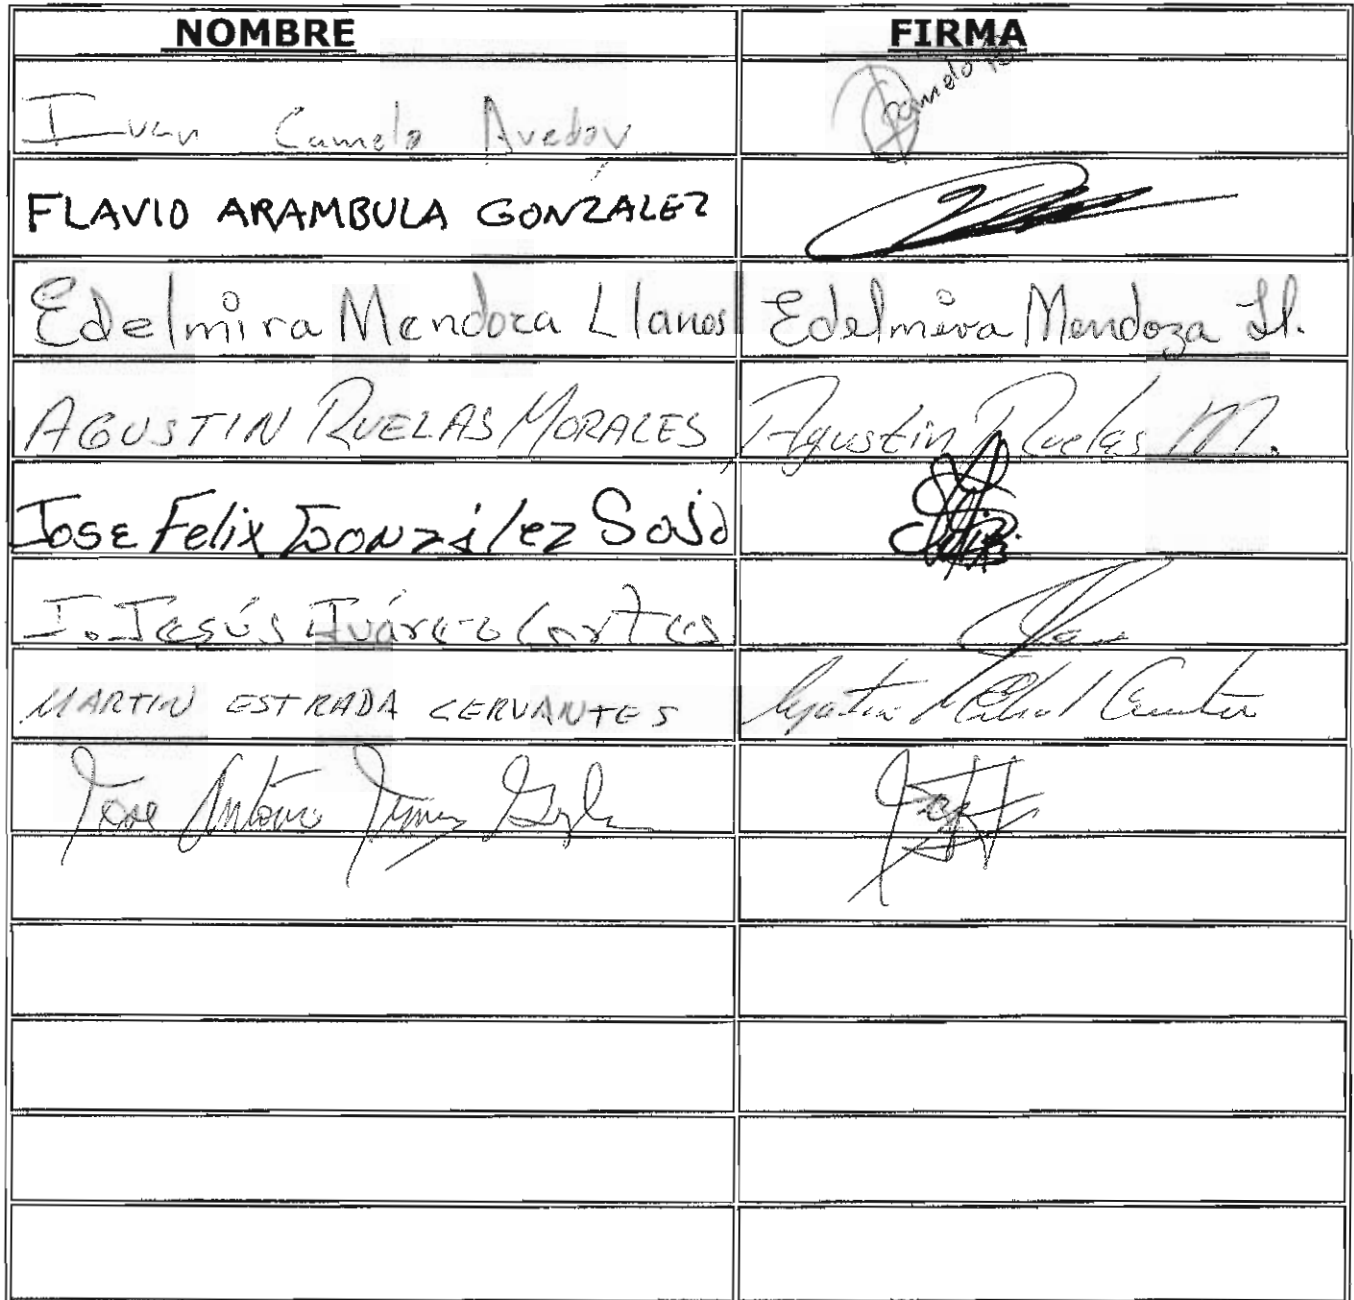 NOMBRE FIRMA
Ivan Camelo Avedoy Camelo
FLAVIO ARAMBULA GONZALEZ
Edelmira Mendoza Llanos Edelmira Mendoza Ll.
AGUSTIN RUELAS MORALES Agustin Ruelas M.
Jose Felix González Soto
J. Jesús Juárez Cortes
MARTIN ESTRADA CERVANTES
Jose Antonio